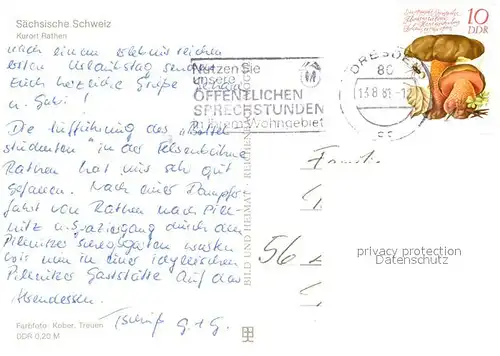 Sächsische Schweiz
Kurort Rathen
nach einem erlebnisreichen
ersten Urlaubstag senden
Euch herzliche Grüße
u. Gabi!
Die Aufführung des "Bettel
studenten" in der Felsenbühne
Rathen hat mir sehr gut
gefallen. Nach einer Dampfer
fahrt von Rathen nach Pill-
nitz u. Spaziergang durch den
Pillnitzer garten warten
wir nun in einer idyllischen
Pillnitzer Gaststätte auf das
Abendessen.
Tschüß G. + G.
Farbfoto: Kober, Treuen
DDR 0,20 M
BILD UND HEIMAT · REICHENBACH
Nutzen Sie
unsere
ÖFFENTLICHEN
SPRECHSTUNDEN
in Ihrem Wohngebiet
DRESDEN
80
13.8.81-12
10
DDR
Familie
56
privacy protection
Datenschutz